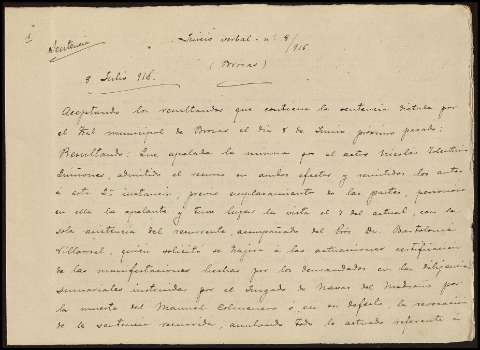 1
Sentencia
Juicio verbal - nº 8/916
(Brozas)
8 Julio 916.
Aceptando los resultandos que contiene la sentencia dictada por
el Tral municipal de Brozas el dia 8 de Junio próximo pasado:
Resultando: Que apelada la misma por el actor Nicolás Tolentino
Quiñones, admitido el recurso en ambos efectos y remitidos los autos
á esta 2ª instancia, previo emplazamiento de las partes, personose
en ella la apelante y tuvo lugar la vista el 7 del actual, con la
sola asistencia del recurrente, acompañado del Dr. Bartolomé
Villarroel, quién solicitó se trajera á las actuaciones certificacion
de las manifestaciones hechas por los demandados en las diligencias
sumariales instruidas por el Juzgado de Navas del Madroño por
la muerte del Manuel ó en su defecto, la revocación
de la sentencia recurrida, anulando todo lo actuado referente á